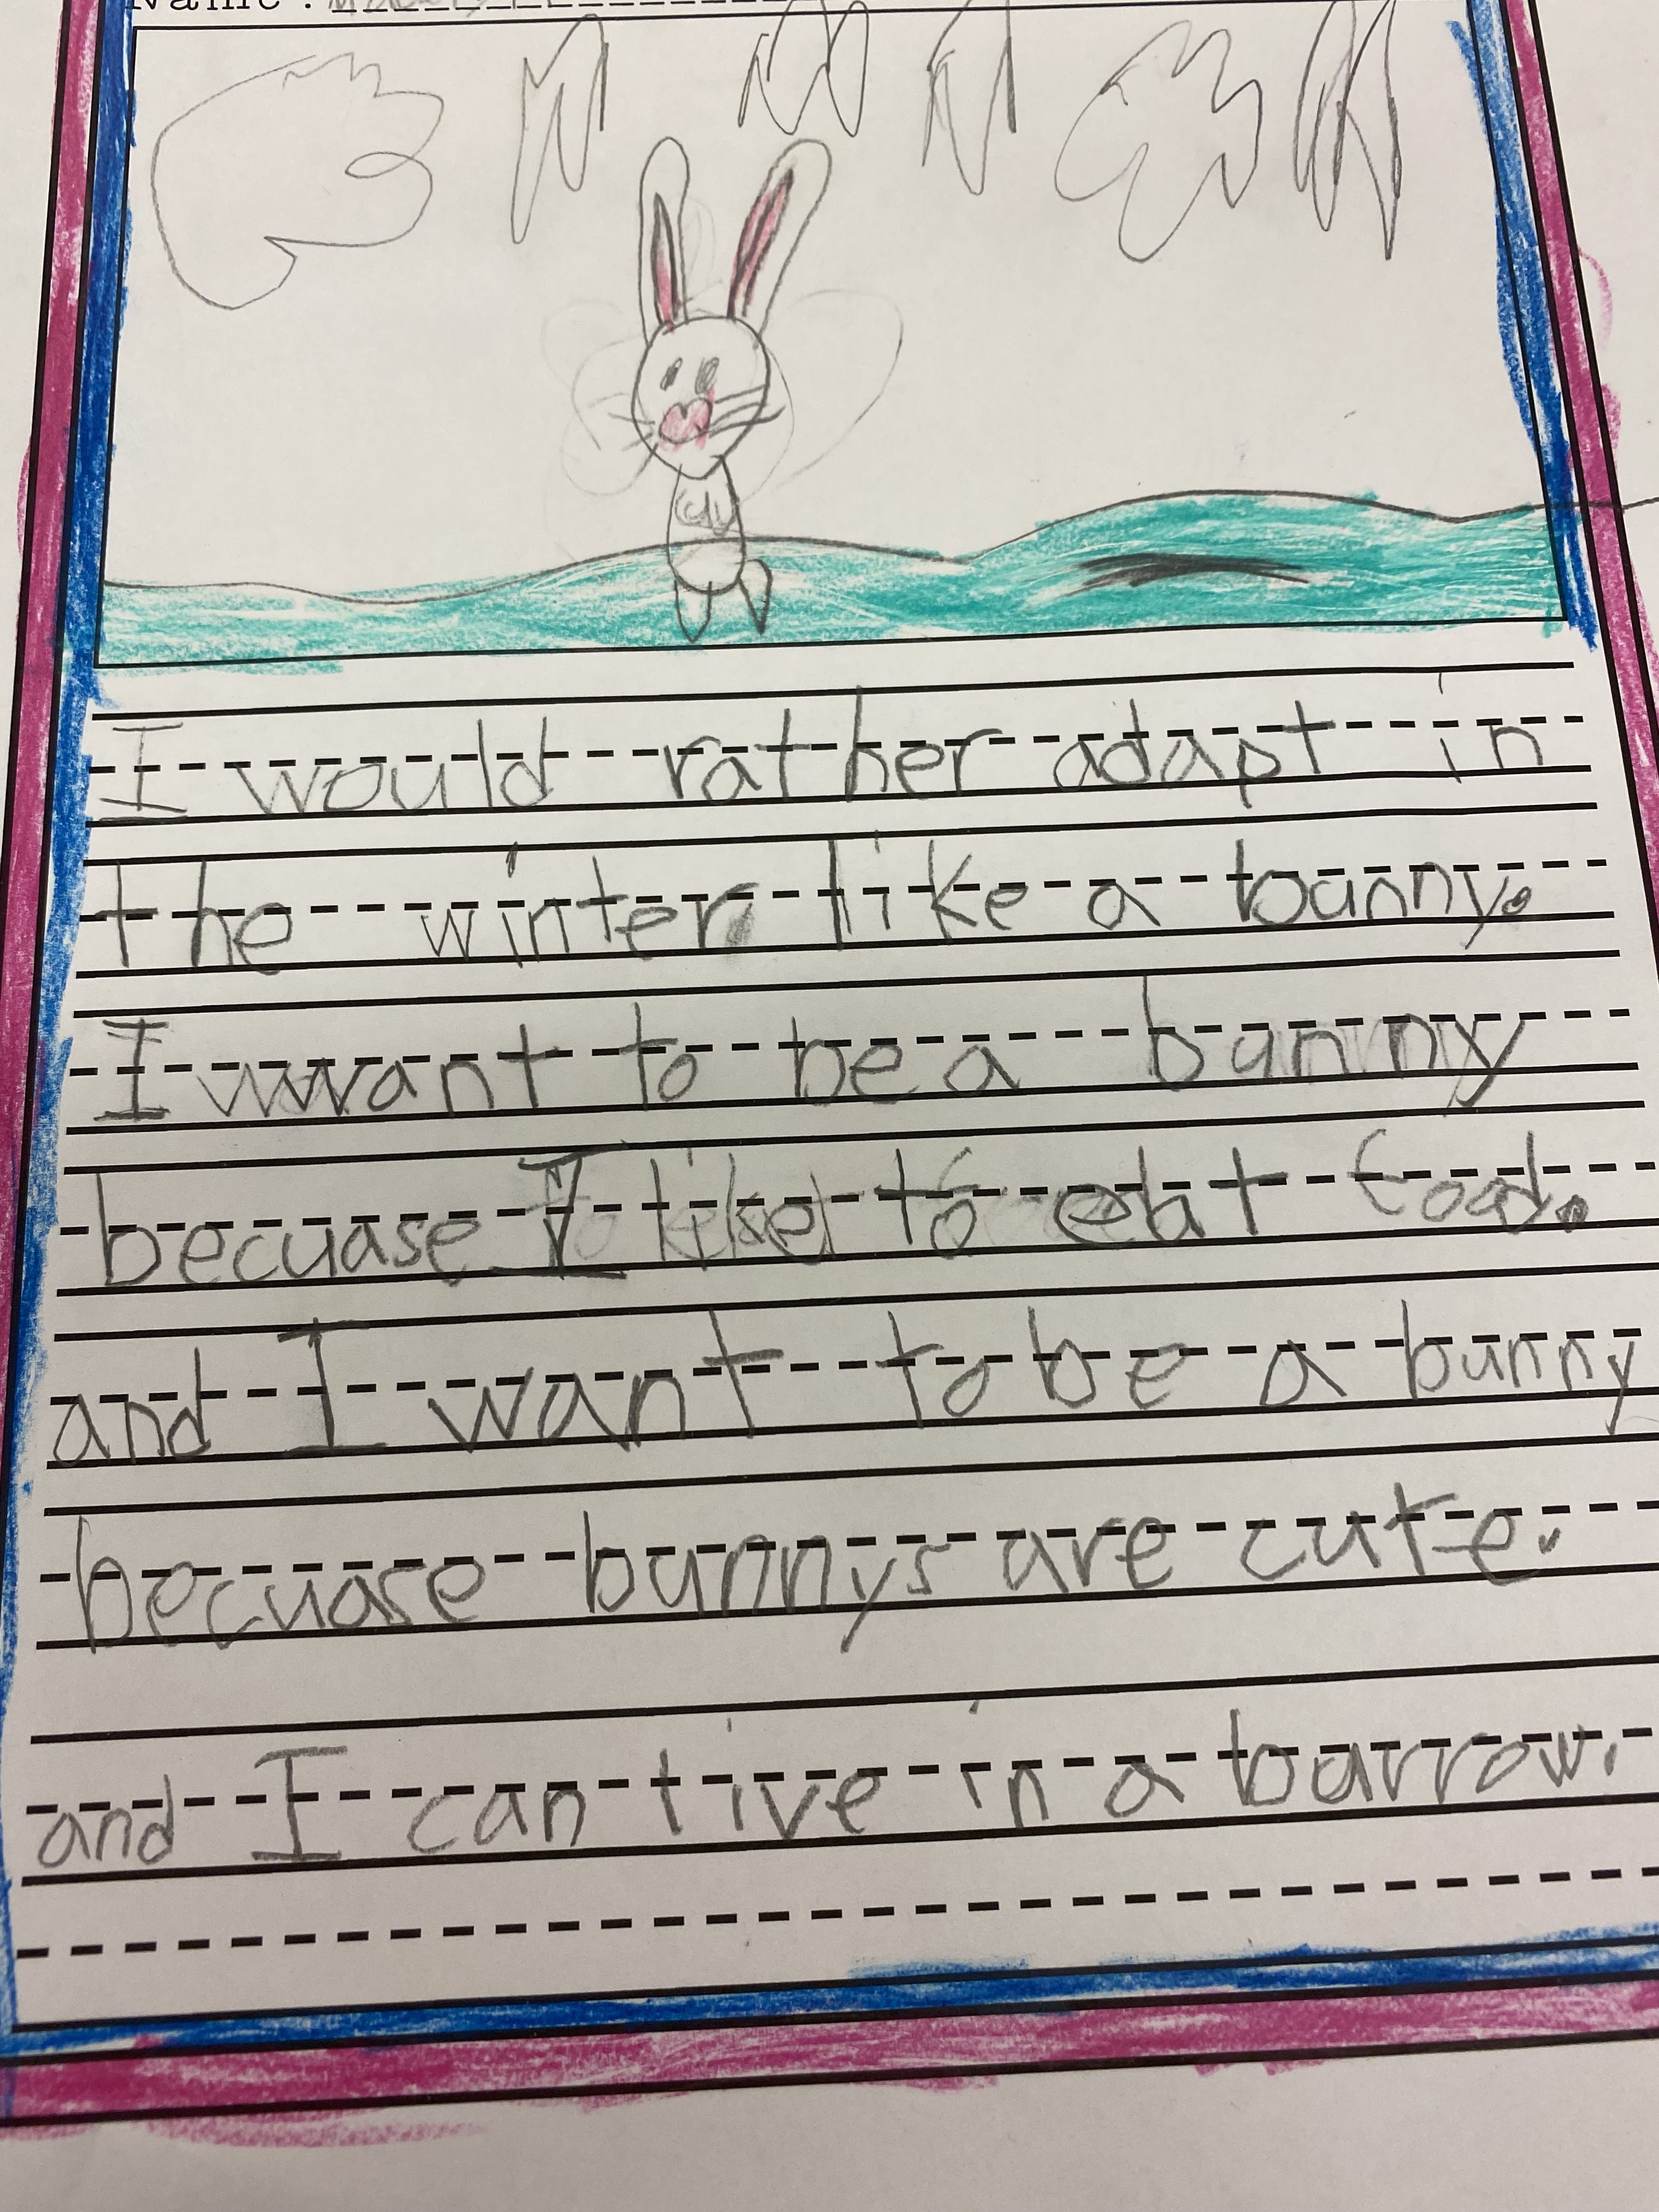 Name:
I would rather adapt in
the winter like a bunny.
I wwant to be a bunny
becuase I like to eat food.
and I want to be a bunny
becuase bunnys are cute.
and I can live in a burrow.